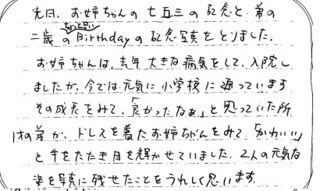 先日、お姉ちゃんの七五三の記念と弟の
二歳のBirthdayの記念写真をとりました。
お姉ちゃんは、去年大きな病気をして、入院し
ましたが、今では元気に小学校に通っています
その成長をみて、「良かったなぁ」と思っていた所
1才の弟が、ドレスを着たお姉ちゃんをみて「かわいい」
と手をたたき目を輝かせていました。2人の元気な
姿を写真に残せたことをうれしく思います。